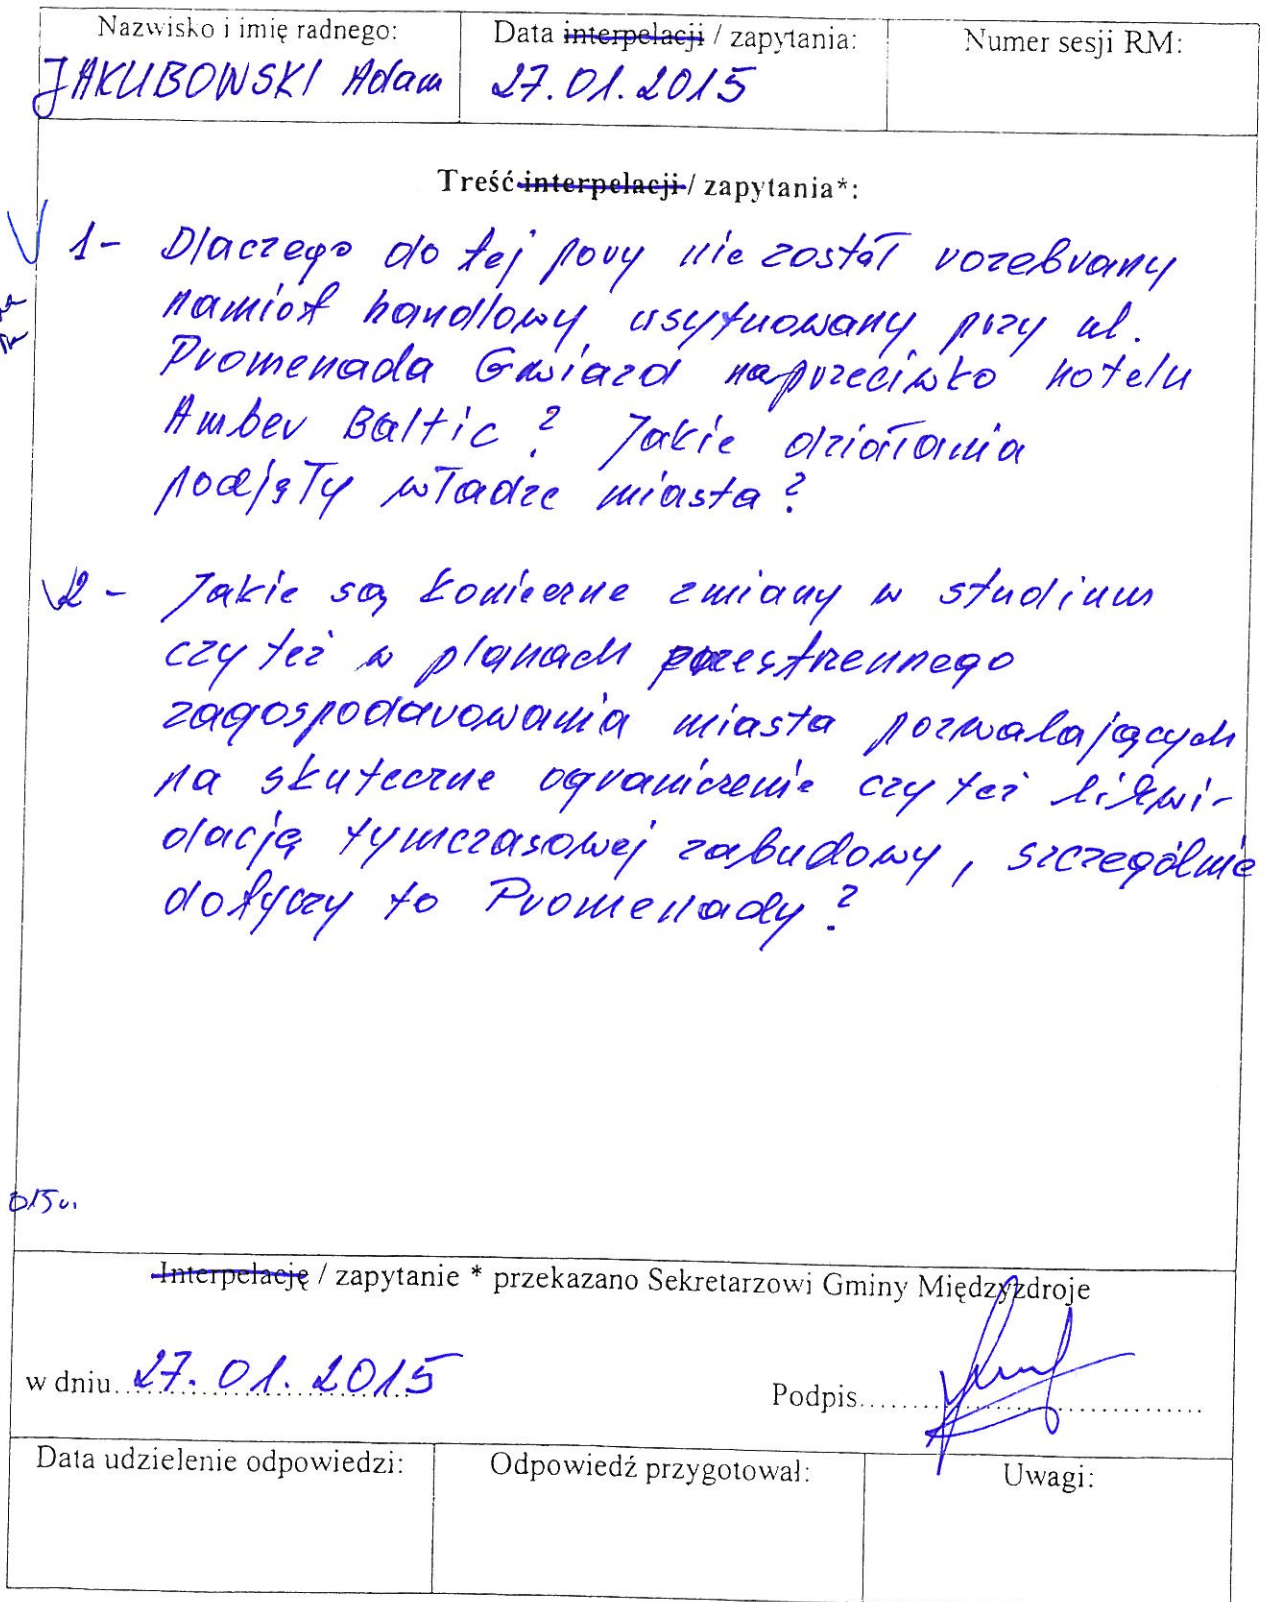 Nazwisko i imię radnego:
JAKUBOWSKI Adam
Data interpelacji / zapytania:
27.01.2015
Numer sesji RM:
Treść interpelacji / zapytania*:
1- Dlaczego do tej pory nie został rozebrany
namiot handlowy usytuowany przy ul.
Promenada Gwiazd naprzeciwko hotelu
Amber Baltic? Jakie działania
podjęły władze miasta?
2- Jakie są konieczne zmiany w studium
czy też w planach przestrzennego
zagospodarowania miasta pozwalających
na skuteczne ograniczenie czy też likwi-
dację tymczasowej zabudowy, szczególnie
dotyczy to Promenady?
015r.
Interpelację / zapytanie * przekazano Sekretarzowi Gminy Międzyzdroje
w dniu 27.01.2015
Podpis
Data udzielenie odpowiedzi:
Odpowiedź przygotował:
Uwagi: